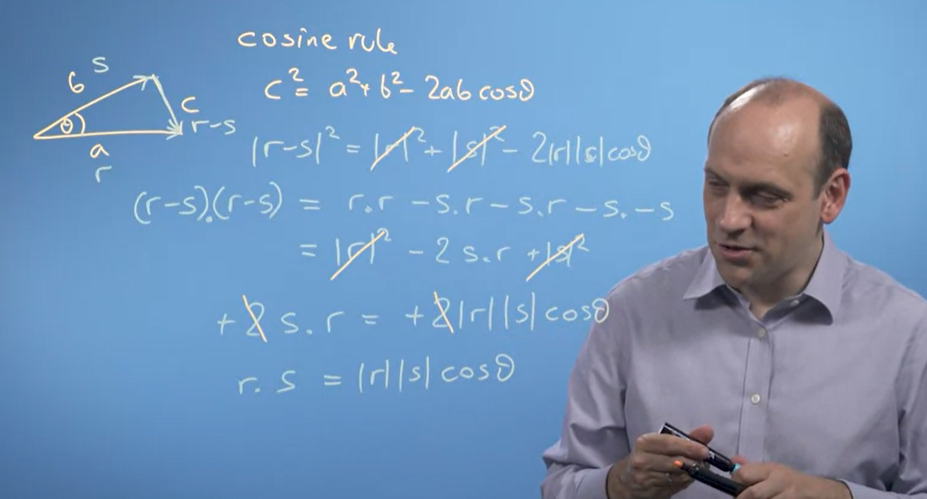 cosine rule
c² = a² + b² - 2ab cosθ
b s
c
r-s
θ
a
r
|r-s|² = |r|² + |s|² - 2|r||s|cosθ
(r-s).(r-s) = r.r - s.r - s.r - s.-s
= |r|² - 2 s.r + |s|²
+2 s.r = +2|r||s|cosθ
r.s = |r||s|cosθ